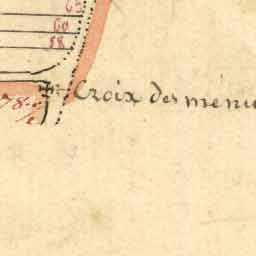 60
58
Croix des menu